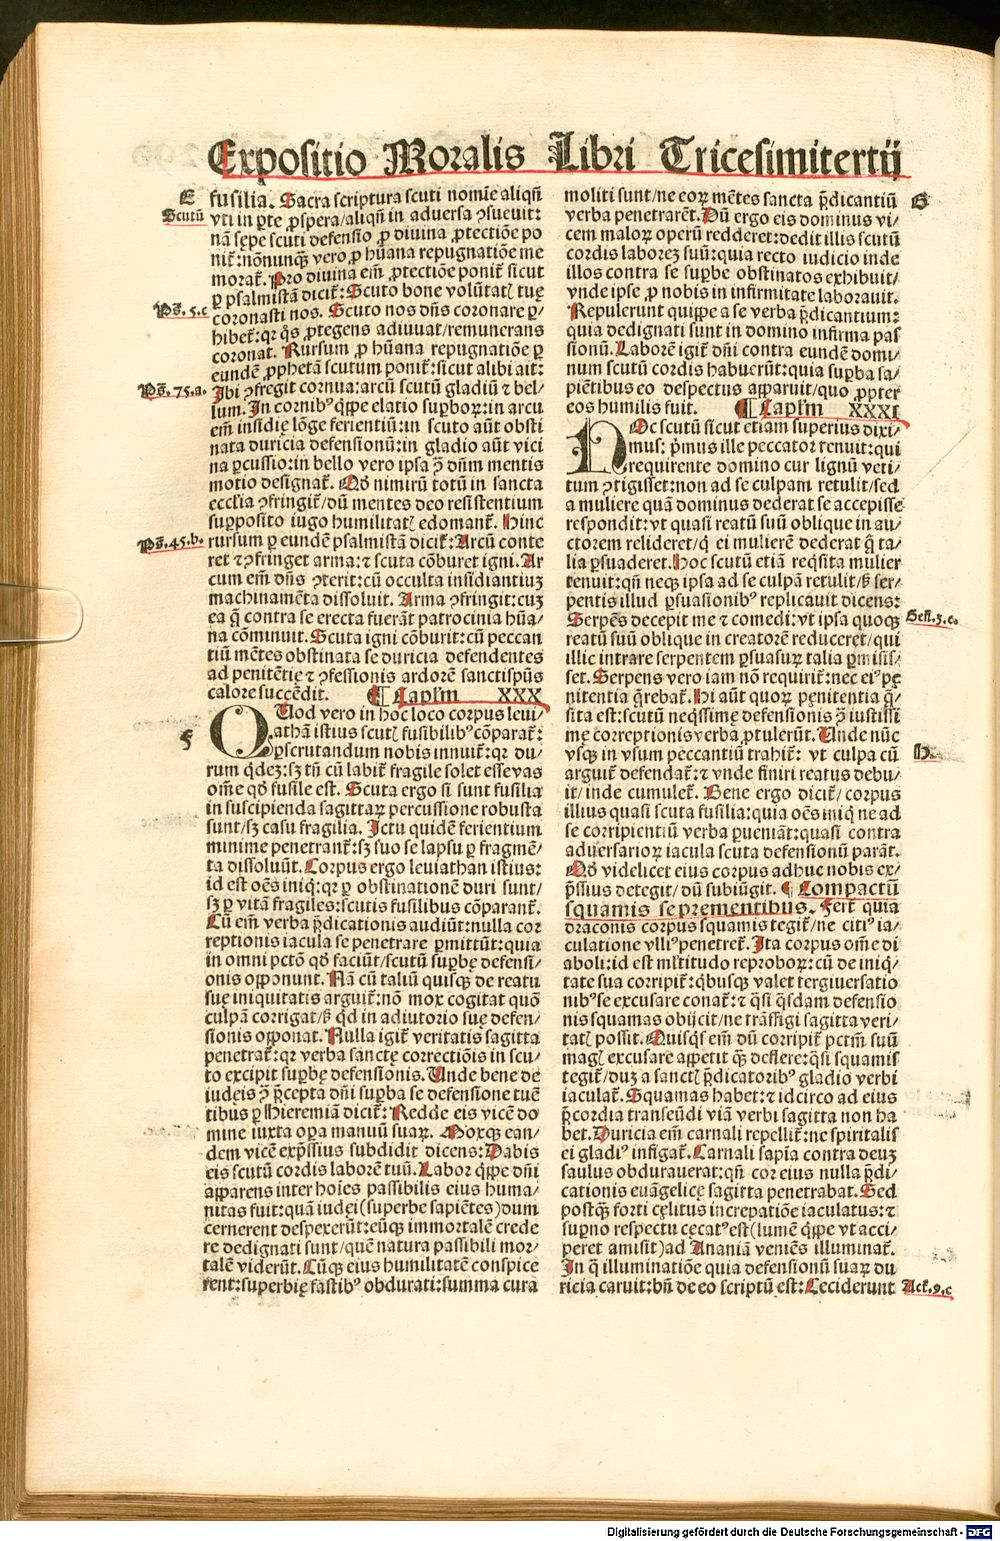 Expositio Moralis Libri Tricesimitertij
E
Scutū
fusilia. Sacra scriptura scuti nomīe aliqñ
vti in ꝑte ꝓspera/aliqñ in aduersa ꝯsueuit:
nā sępe scuti defensio ꝓ diuina ꝓtectiōe po
nit̄: nōnunqꝫ vero ꝓ hūana repugnatiōe me
morat̄. Pro diuina em̄ ꝓtectiōe ponit̄ sicut
ꝑ psalmistā dicit̄: Scuto bone volūtatꝭ tuę
Ps̄. 5. c
coronasti nos. Scuto nos dn̄s coronare ꝑ/
hibet̄: qꝛ qͦs ꝓtegens adiuuat/remunerans
coronat. Rursum ꝓ hūana repugnatiōe ꝑ
eundē ꝓphetā scutum ponit̄: sicut alibi ait:
Ps̄. 75. a.
Ibi ꝯfregit cornua: arcū scutū gladiū ⁊ bel/
lum. In cornibꝰ qͥppe elatio suꝑboꝝ: in arcu
em̄ insidię lōge ferientiū: in scuto aūt obsti
nata duricia defensionū: in gladio aūt vici
na ꝑcussio: in bello vero ipsa ꝯ̄ dūm mentis
motio designat̄. Qd̄ nimirū totū in sancta
ecclīa ꝯfringit̄/dū mentes deo resistentium
suꝑposito iugo humilitatꝭ edomant̄. Hinc
Ps̄. 45. b.
rursum ꝑ eundē psalmistā dicit̄: Arcū conte
ret ⁊ ꝯfringet arma: ⁊ scuta cōburet igni. Ar
cum em̄ dn̄s ꝯterit: cū occulta insidiantiuꝫ
machinamēta dissoluit. Arma ꝯfringit: cuꝫ
ea q̄ contra se erecta fuerāt patrocinia hūa/
na cōminuit. Scuta igni cōburit: cū peccan
tiū mētes obstinata se duricia defendentes
ad penitētię ⁊ ꝯfessionis ardorē sanctispūs
calore succēdit. ¶ Capl̄m XXX
F
QUod vero in hoc loco corpus leui/
athā istius scutꝭ fusilibꝰ cōparat̄:
ꝑscrutandum nobis innuit̄: qꝛ du/
rum qͥdeꝫ: sꝫ tn̄ cū labit̄ fragile solet esse vas
om̄e qd̄ fusile est. Scuta ergo si sunt fusilia
in suscipienda sagittaꝝ percussione robusta
sunt/sꝫ casu fragilia. Ictu quidē ferientium
minime penetrant̄: sꝫ suo se lapsu ꝑ fragmē/
ta dissoluūt. Corpus ergo leuiathan istius:
id est oēs iniqͥ: qꝛ ꝑ obstinationē duri sunt/
sꝫ ꝑ vitā fragiles: scutis fusilibus cōparant̄.
Cū em̄ verba p̄dicationis audiūt: nulla cor
reptionis iacula se penetrare ꝑmittūt: quia
in omni pctō qd̄ faciūt/scutū suꝑbę defensi/
onis opponunt. Nā cū taliū quisqꝫ de reatu
suę iniquitatis arguit̄: nō mox cogitat quō
culpā corrigat/sꝫ qͥd in adiutorio suę defen/
sionis opponat. Nulla igit̄ veritatis sagitta
penetrat̄: qꝛ verba sanctę correctiōis in scu/
to excipit suꝑbę defensionis. Unde bene de
iudeis ꝯ̄ p̄cepta dn̄i suꝑba se defensione tuē
tibus ꝑ Hieremiā dicit̄: Redde eis vicē do
mine iuxta oꝑa manuū suaꝝ. Moxqꝫ ean/
dem vicē exp̄ssius subdidit dicens: Dabis
eis scutū cordis laborē tuū. Labor qͥppe dn̄i
apparens inter hoīes passibilis eius huma/
nitas fuit: quā iudei (superbe sapiētes) dum
cernerent despexerūt: eūqꝫ immortalē crede
re dedignati sunt/quē natura passibili mor/
talē viderūt. Cūqꝫ eius humilitatē conspice
rent: superbię fastibꝰ obdurati: summa cura
G
moliti sunt/ne eoꝝ mētes sancta p̄dicantiū
verba penetrarēt. Dū ergo eis dominus vi/
cem maloꝝ operū redderet: dedit illis scutū
cordis laborez suū: quia recto iudicio inde
illos contra se suꝑbe obstinatos exhibuit/
vnde ipse ꝓ nobis in infirmitate laborauit.
Repulerunt quippe a se verba p̄dicantium:
quia dedignati sunt in domino infirma pas
sionū. Laborē igit̄ dn̄i contra eundē domi/
num scutū cordis habuerūt: quia suꝑba sa/
piētibus eo despectus apparuit/quo ꝓpter
eos humilis fuit. ¶ Capl̄m XXXI
HOc scutū sicut etiam superius dixi/
mus: p̄mus ille peccator tenuit: qui
requirente domino cur lignū veti/
tum ꝯtigisset: non ad se culpam retulit/sed
a muliere quā dominus dederat se accepisse
respondit: vt quasi reatū suū oblique in au/
ctorem relideret/qͥ ei mulierē dederat q̄ ta/
lia ꝑsuaderet. Hoc scutū etiā reqͥsita mulier
tenuit: qn̄ neqꝫ ipsa ad se culpā retulit/sꝫ ser/
pentis illud ꝑsuasionibꝰ replicauit dicens:
Gen̄. 3. c.
Serpēs decepit me ⁊ comedi: vt ipsa quoqꝫ
reatū suū oblique in creatorē reduceret/qui
illic intrare serpentem ꝑsuasuꝝ talia ꝑmisis/
set. Serpens vero iam nō requirit̄: nec eiꝰ pę
nitentia q̄rebat̄. Hi aūt quoꝝ pęnitentia q̄/
sita est: scutū neqͥssimę defensionis ꝯ̄ iustissi
mę correptionis verba ꝓtulerūt. Unde nūc
H
vsqꝫ in vsum peccantiū trahit̄: vt culpa cū
arguit̄ defendat̄: ⁊ vnde finiri reatus debu/
it/inde cumulet̄. Bene ergo dicit̄/corpus
illius quasi scuta fusilia: quia oēs iniqͥ ne ad
se corripientiū verba ꝑueniāt: quasi contra
aduersarioꝝ iacula scuta defensionū parāt.
Qd̄ videlicet eius corpus adhuc nobis ex/
p̄ssius detegit/dū subiūgit. ¶ Compactū
squamis se prementibus. Fert̄ quia
draconis corpus squamis tegit̄/ne citiꝰ ia/
culatione vlliꝰ penetret̄. Ita corpus om̄e di
aboli: id est ml̄titudo reproboꝝ: cū de iniqͥ/
tate sua corripit̄: qͥbusqꝫ valet tergiuersatio
nibꝰ se excusare conat̄: ⁊ qͣsi qͣsdam defensio
nis squamas obijcit/ne trāsfigi sagitta veri/
tatꝭ possit. Quisqͥs em̄ dū corripit̄ pctm̄ suū
magꝭ excusare appetit qͣꝫ deflere: qͣsi squamis
tegit̄/duꝫ a sanctꝭ p̄dicatoribꝰ gladio verbi
iaculat̄. Squamas habet: ⁊ idcirco ad eius
p̄cordia transeūdi viā verbi sagitta non ha
bet. Duricia em̄ carnali repellit̄: ne spiritalis
ei gladiꝰ infigat̄. Carnali sapīa contra deuꝫ
saulus obdurauerat: qn̄ cor eius nulla p̄di/
cationis euāgelicę sagitta penetrabat. Sed
postqꝫ forti cęlitus increpatiōe iaculatus: ⁊
suꝑno respectu cęcatꝰ est (lumē qͥppe vt acci/
peret amisit) ad Ananiā veniēs illuminat̄.
In q̄ illuminatiōe quia defensionū suaꝝ du
Act̄. 9. c
ricia caruit: bn̄ de eo scriptū est: Ceciderunt
Digitalisierung gefördert durch die Deutsche Forschungsgemeinschaft - DFG